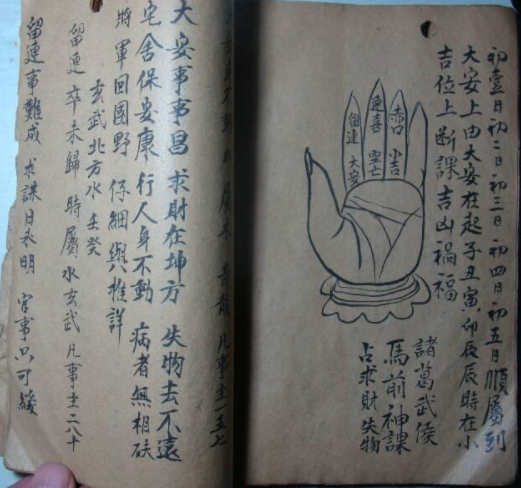 初壹日初二日初三日初四日初五日順屬到
大安上由大安在起子丑寅卯辰辰時在小
吉位上断課吉凶禍福
赤口 小吉
速喜 空亡
留連 大安
諸葛武侯
馬前神課
占求財失物
身不動 時屬木 青龍 凡事主一五七
大安事事昌 求財在坤方 失物去不遠
宅舍保安康 行人身不動 病者無相
將軍回國野 仔細與推詳
玄武北方水 壬癸
留連 卒未歸 時屬水玄武 凡事主二八十
留連事難成 求謀日未明 官事只可緩